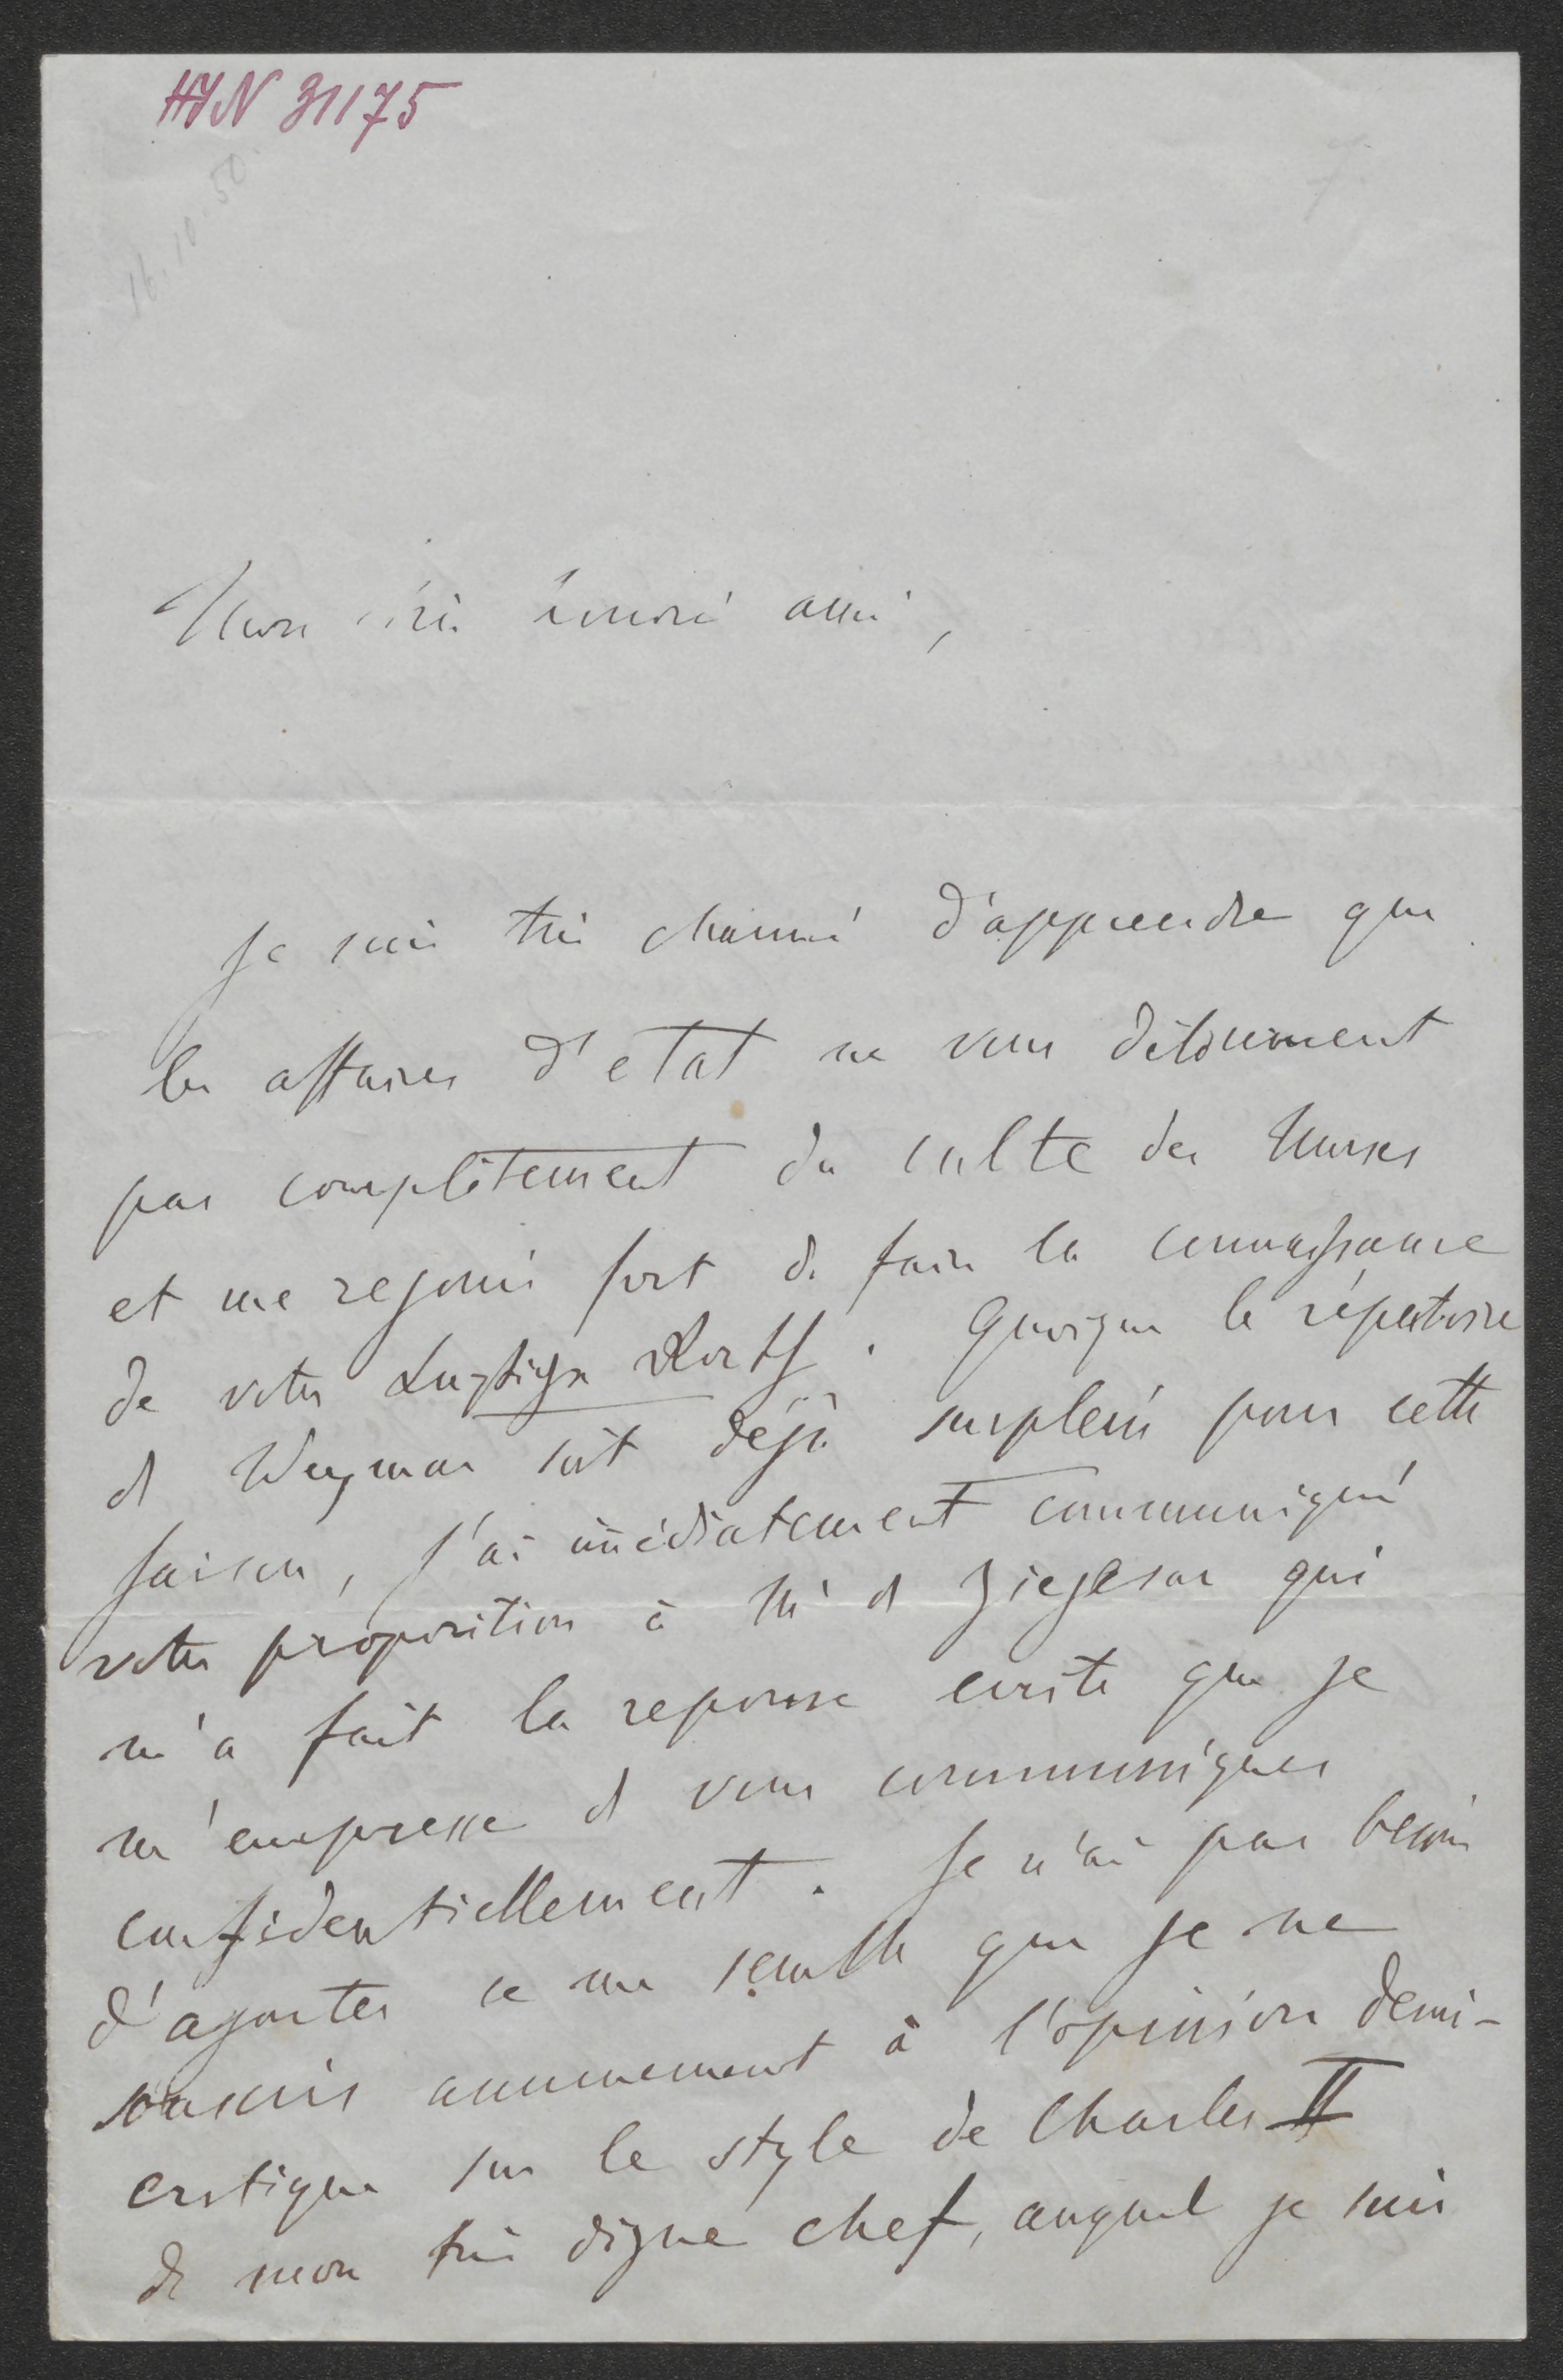 HJN 31175
16.10.50
7
Mon très honoré ami,
Je suis très charmé d'apprendre que
les affaires d'etat ne vous détournent
pas complètement du culte des Muses
et me rejouis fort de faire la connaissance
de votre Lustige Rath. Quoique le répertoire
de Weymar soit déjà surplein pour cette
saison, j'ai im̅édiatement communiqué
votre proposition à Mr de Ziegesar qui
m'a fait la reponse ecrite que je
m'empresse de vous communiquer
confidentiellement. Je n'ai pas besoin
d'ajouter ce me semble que je ne
souscris aucunement à l'opinion demi-
critique sur le style de Charles II
de mon très digne chef, auquel je suis